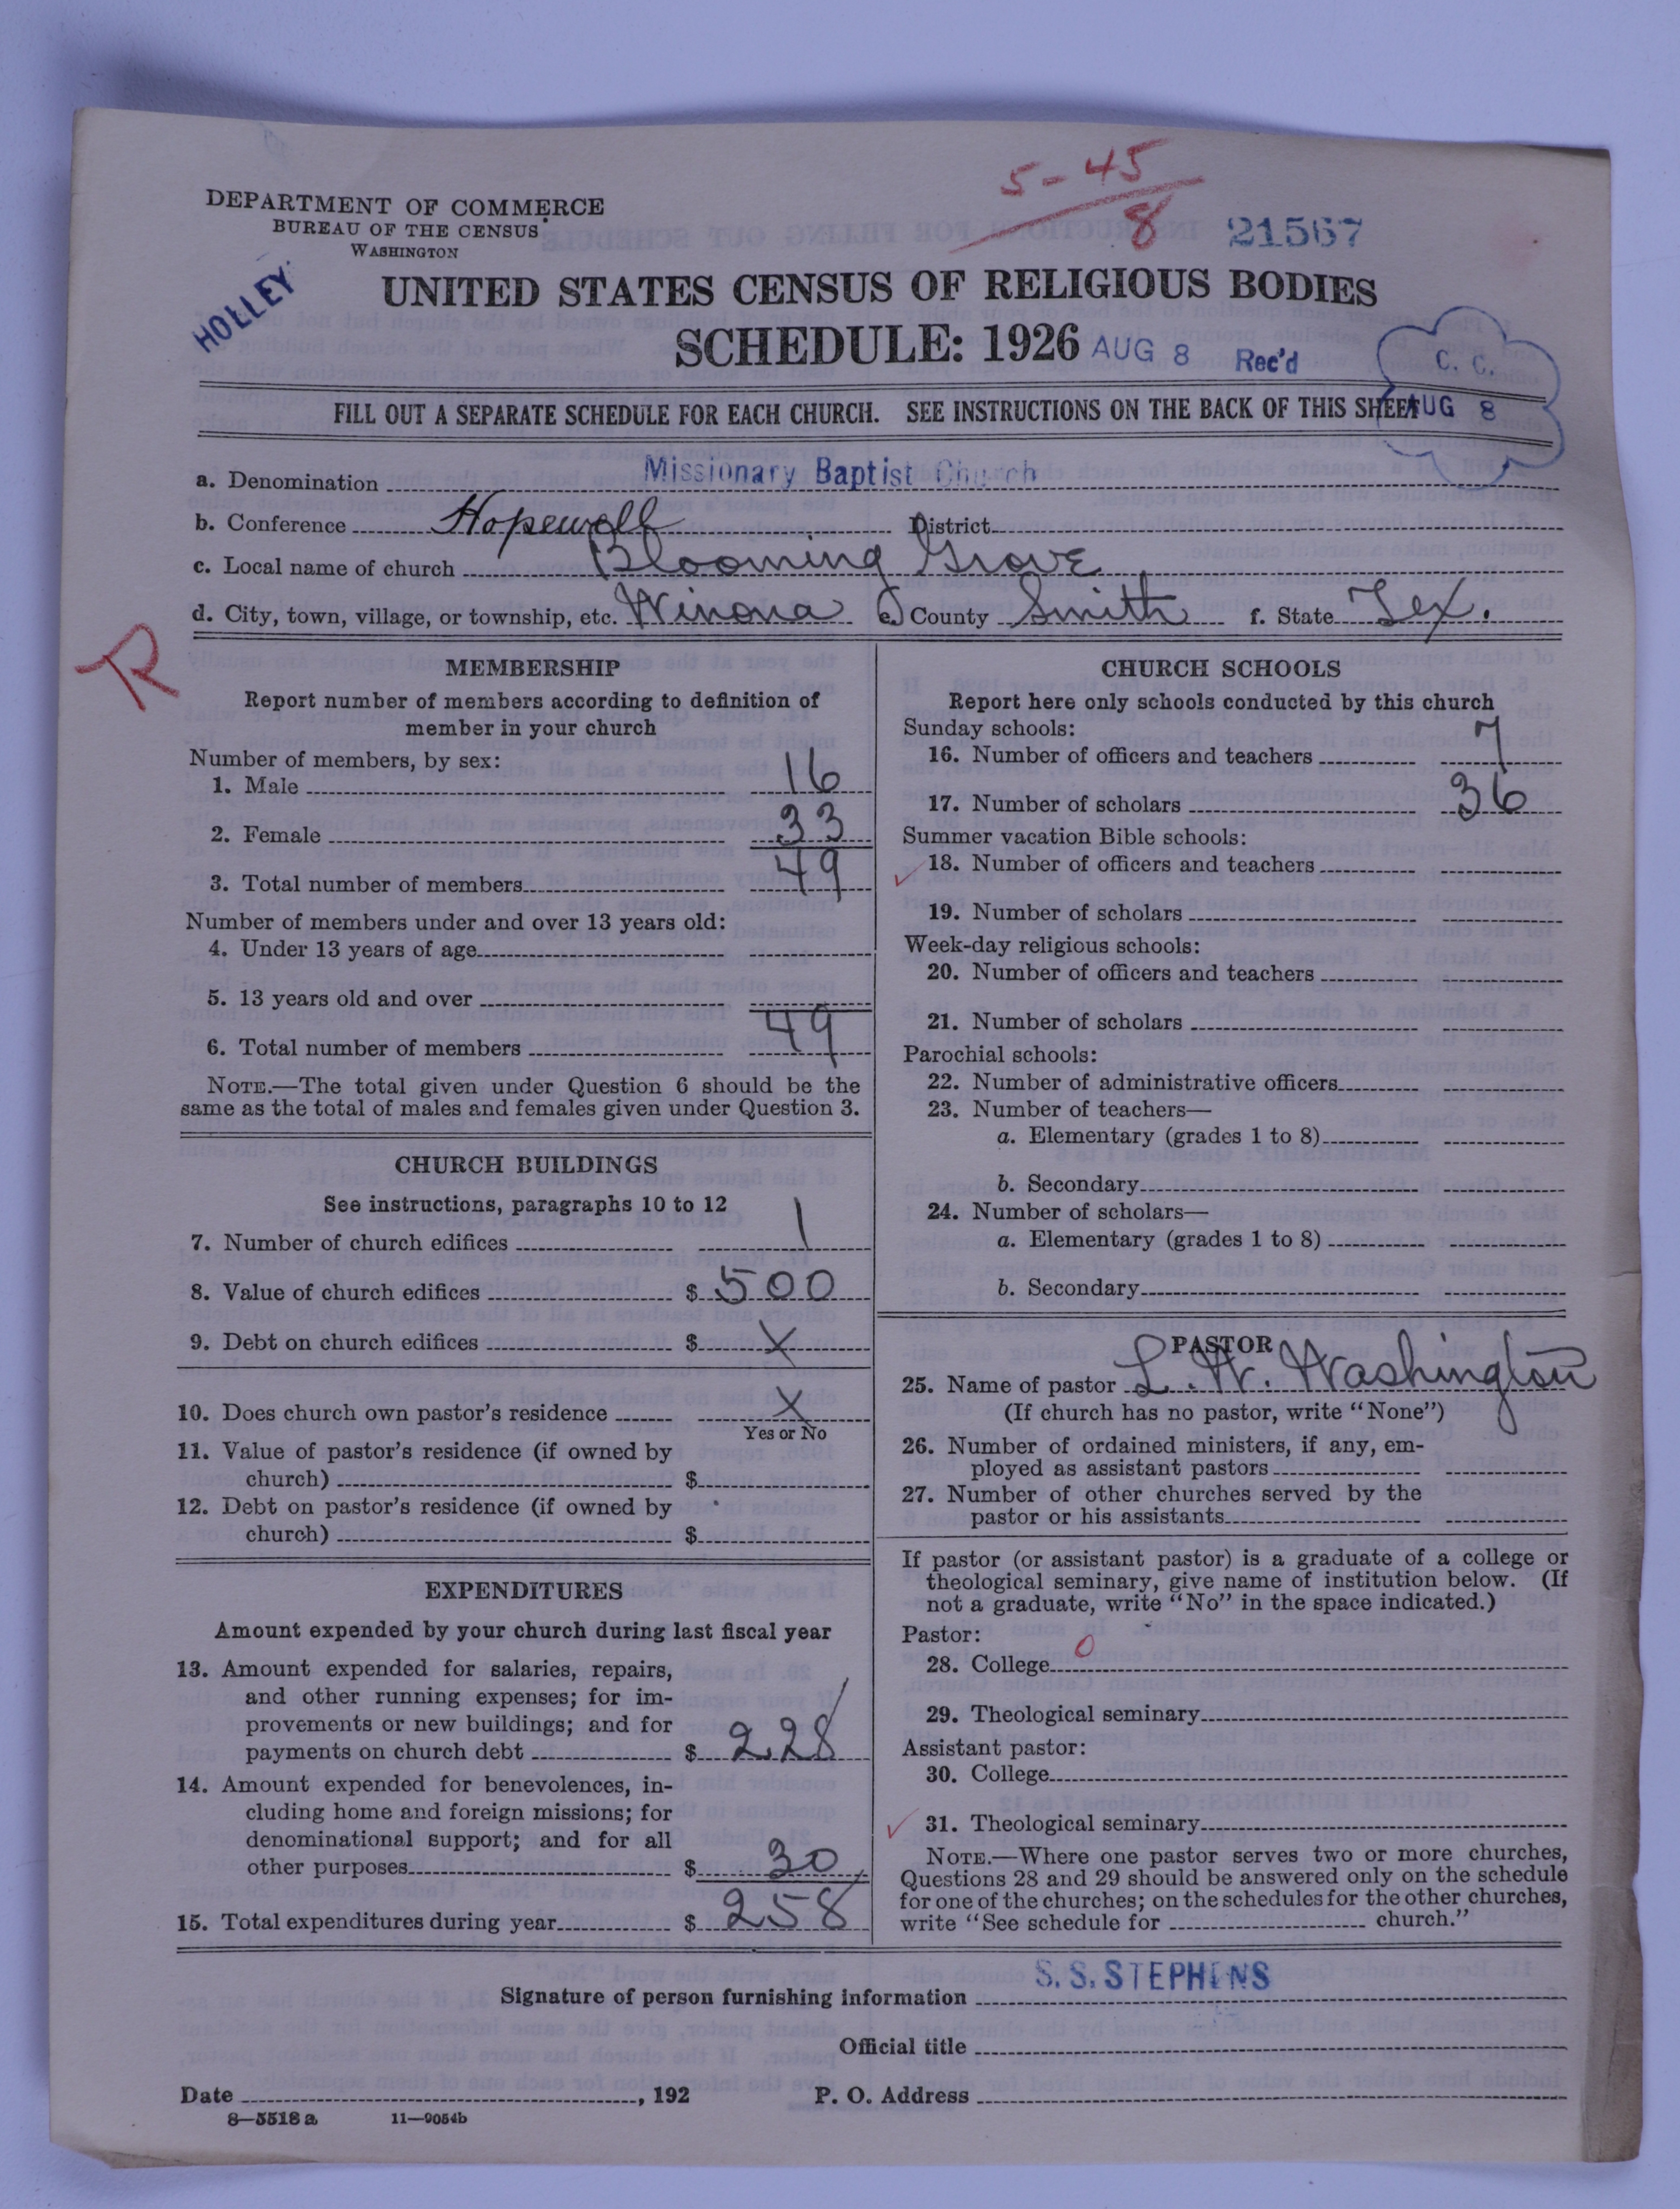 5-45
8
21567
DEPARTMENT OF COMMERCE
BUREAU OF THE CENSUS
WASHINGTON
HOLLEY
UNITED STATES CENSUS OF RELIGIOUS BODIES
SCHEDULE: 1926 AUG 8 Rec'd
C. C.
AUG 8
FILL OUT A SEPARATE SCHEDULE FOR EACH CHURCH. SEE INSTRUCTIONS ON THE BACK OF THIS SHEET
a. Denomination Missionary Baptist Church
b. Conference Hopewell District
c. Local name of church Blooming Grove
d. City, town, village, or township, etc. Winona e. County Smith f. State Tex.
R
MEMBERSHIP
Report number of members according to definition of
member in your church
Number of members, by sex:
1. Male 16
2. Female 33
3. Total number of members 49
Number of members under and over 13 years old:
4. Under 13 years of age
5. 13 years old and over
6. Total number of members 49
NOTE.—The total given under Question 6 should be the
same as the total of males and females given under Question 3.
CHURCH BUILDINGS
See instructions, paragraphs 10 to 12
7. Number of church edifices 1
8. Value of church edifices $ 500
9. Debt on church edifices $ X
10. Does church own pastor's residence X
Yes or No
11. Value of pastor's residence (if owned by
church) $
12. Debt on pastor's residence (if owned by
church) $
EXPENDITURES
Amount expended by your church during last fiscal year
13. Amount expended for salaries, repairs,
and other running expenses; for im-
provements or new buildings; and for
payments on church debt $ 228
14. Amount expended for benevolences, in-
cluding home and foreign missions; for
denominational support; and for all
other purposes $ 30
15. Total expenditures during year $ 258
CHURCH SCHOOLS
Report here only schools conducted by this church
Sunday schools:
16. Number of officers and teachers 7
17. Number of scholars 36
Summer vacation Bible schools:
18. Number of officers and teachers
19. Number of scholars
Week-day religious schools:
20. Number of officers and teachers
21. Number of scholars
Parochial schools:
22. Number of administrative officers
23. Number of teachers—
a. Elementary (grades 1 to 8)
b. Secondary
24. Number of scholars—
a. Elementary (grades 1 to 8)
b. Secondary
PASTOR
25. Name of pastor L. W. Washington
(If church has no pastor, write "None")
26. Number of ordained ministers, if any, em-
ployed as assistant pastors
27. Number of other churches served by the
pastor or his assistants
If pastor (or assistant pastor) is a graduate of a college or
theological seminary, give name of institution below. (If
not a graduate, write "No" in the space indicated.)
Pastor:
28. College 0
29. Theological seminary
Assistant pastor:
30. College
31. Theological seminary
NOTE.—Where one pastor serves two or more churches,
Questions 28 and 29 should be answered only on the schedule
for one of the churches; on the schedules for the other churches,
write "See schedule for church."
Signature of person furnishing information S. S. STEPHENS
Official title
Date , 192 P. O. Address
8—5518 a 11—9054b